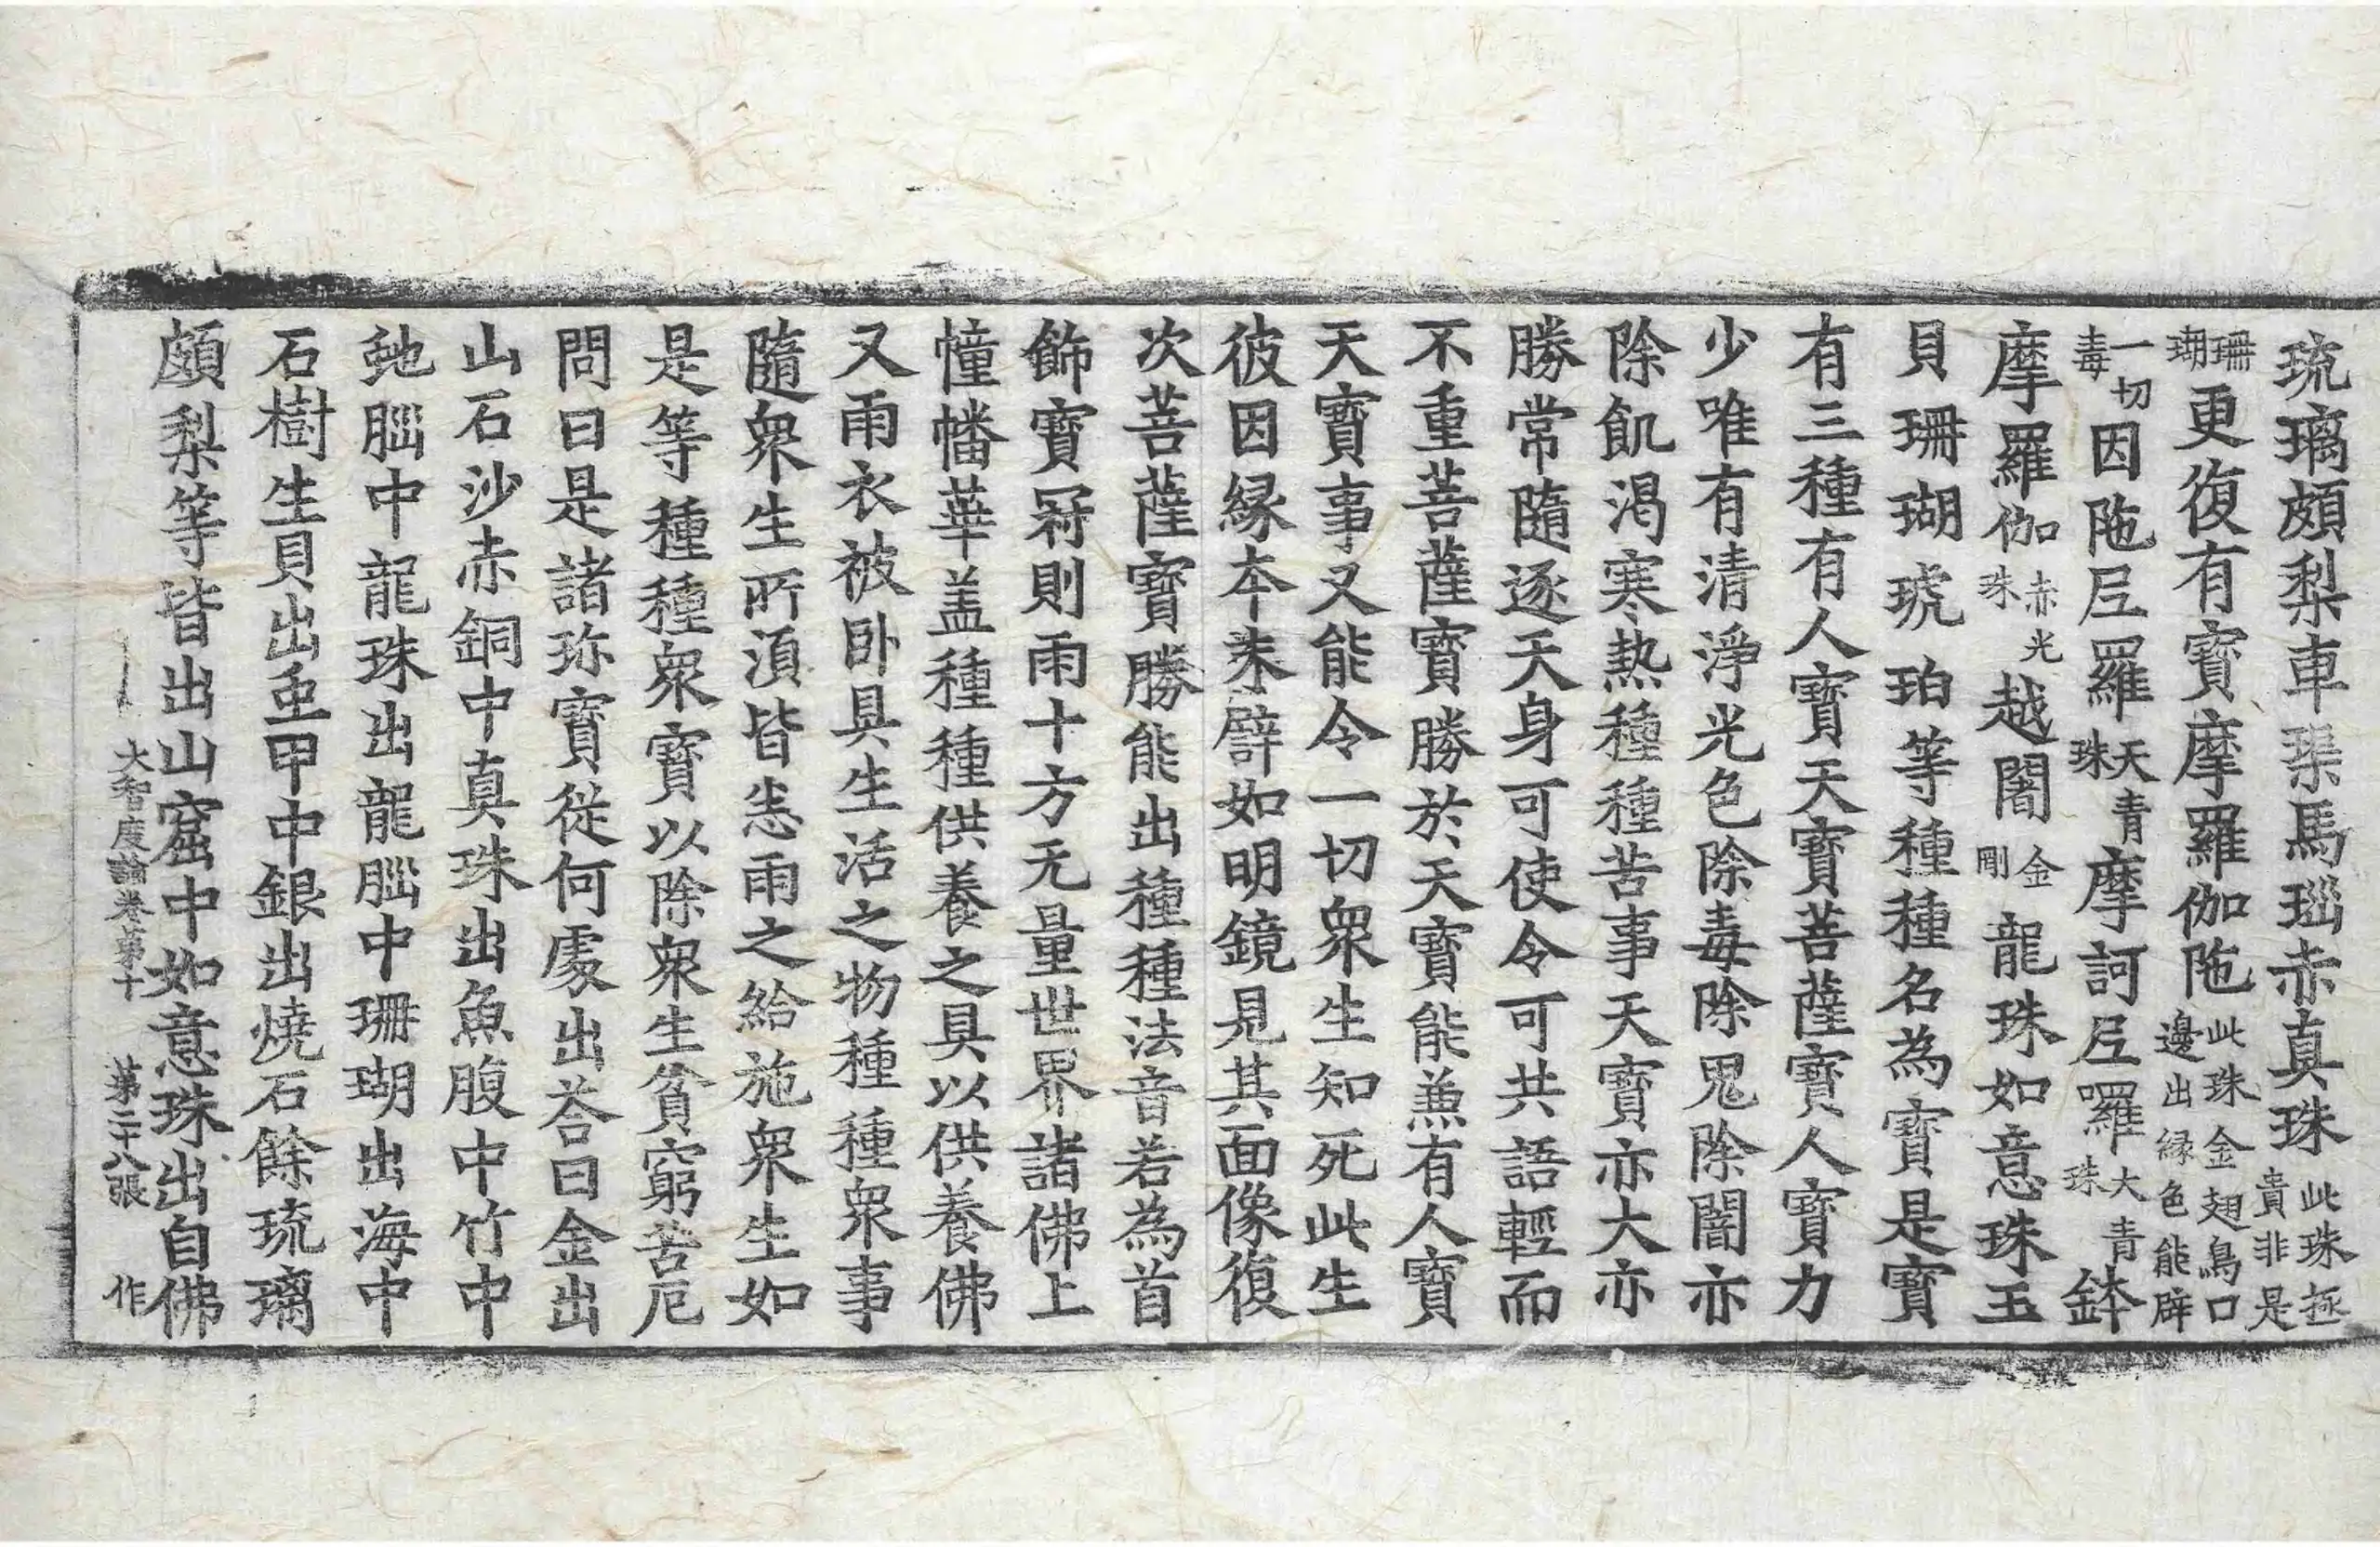 琉璃頗梨車璖馬瑙赤真珠此珠極貴非是
珊瑚更復有寶摩羅伽陁此珠金翅鳥口邊出縁色能辟
一切毒因陁𡰱羅天青珠摩訶𡰱囉大青珠鉢
摩羅伽赤光珠越闍金剛龍珠如意珠玉
貝珊瑚琥珀等種種名為寶是寶
有三種有人寶天寶菩薩寶人寶力
少唯有清淨光色除毒除鬼除闇亦
除飢渴寒熱種種苦事天寶亦大亦
勝常隨逐天身可使令可共語輕而
不重菩薩寶勝於天寶能兼有人寶
天寶事又能令一切衆生知死此生
彼因縁夲来譬如明鏡見其面像復
次菩薩寶勝能出種種法音若為首
飾寶冠則雨十方无量世界諸佛上
幢幡華盖種種供養之具以供養佛
又雨衣被卧具生活之物種種衆事
隨衆生所湏皆悉雨之給施衆生如
是等種種衆寶以除衆生貧窮苦厄
問曰是諸珎寶從何處出荅曰金出
山石沙赤銅中真珠出魚腹中竹中
虵𦛁中龍珠出龍𦛁中珊瑚出海中
石樹生貝出䖝甲中銀出燒石餘琉璃
頗梨等皆出山窟中如意珠出自佛
大智度論卷第十 第二十八張 作